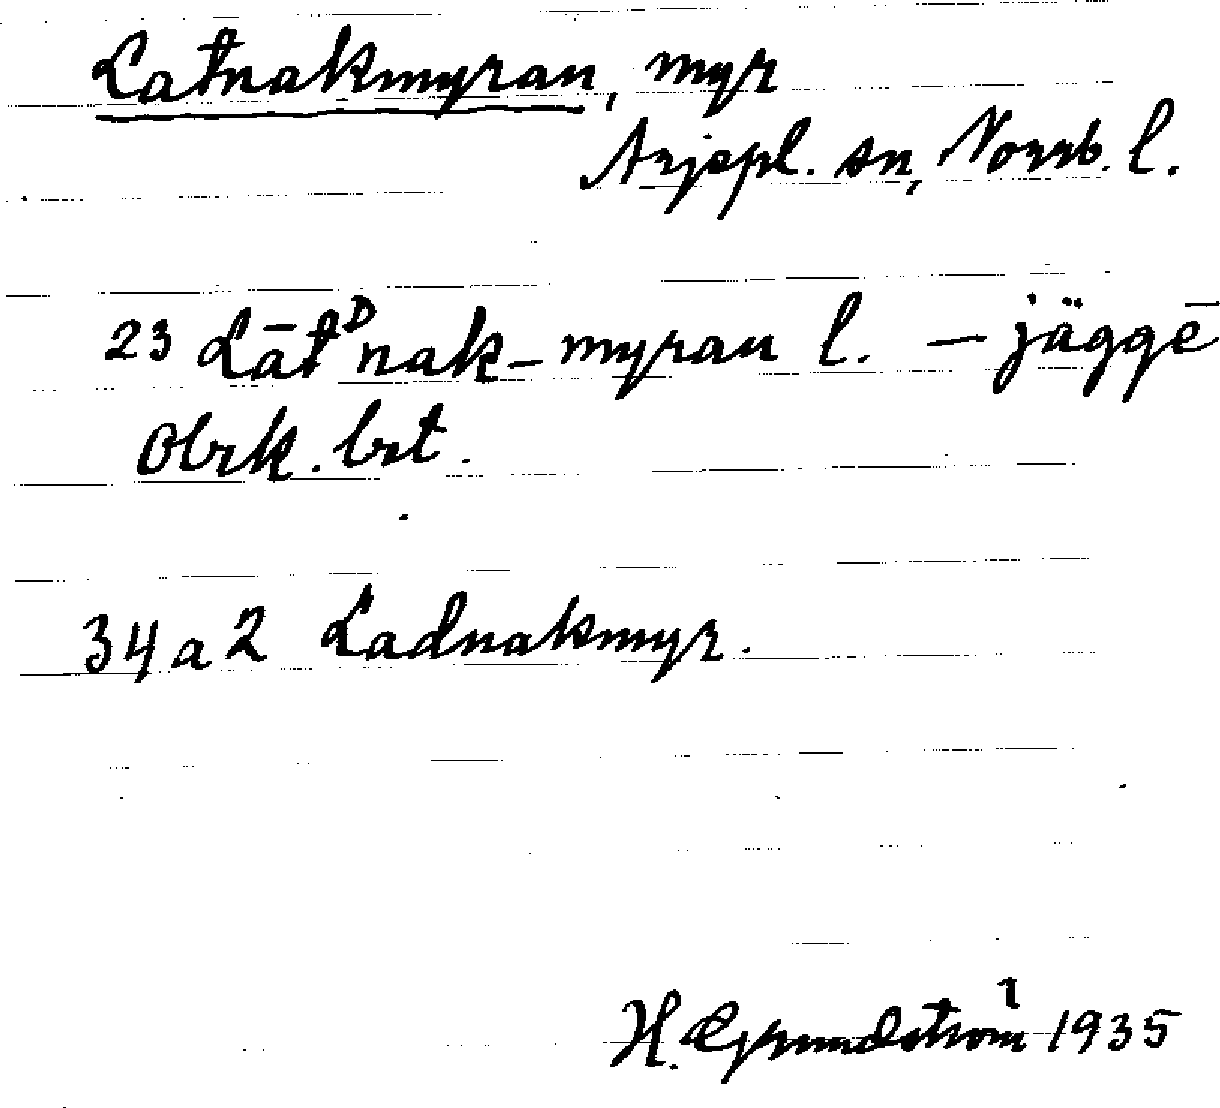 Latnakmyran, myr
Arjepl. sn, Norrb. l.
23 Lāt ᴰnak-myran l. – jäggē
Obrk. brt.
34 a 2 Ladnakmyr.
H. Grundström 1935